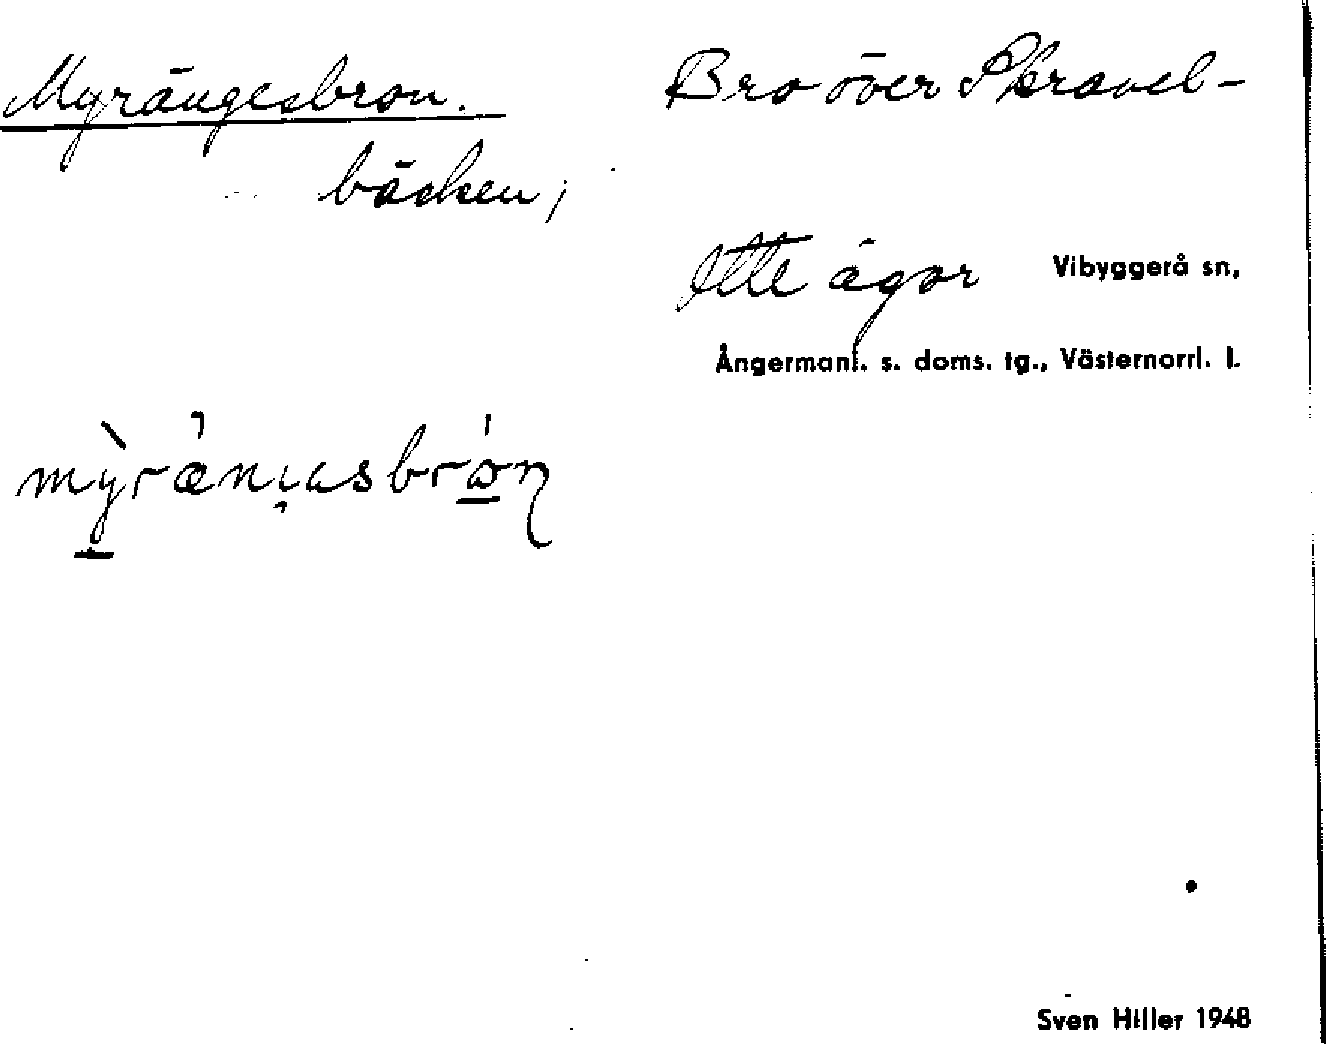 Myrängesbron. Bro över Skravel-
bäcken,
ägor Vibyggerå sn,
Ångermanl. s. doms. tg., Västernorrl. l.
Sven Hiller 1948